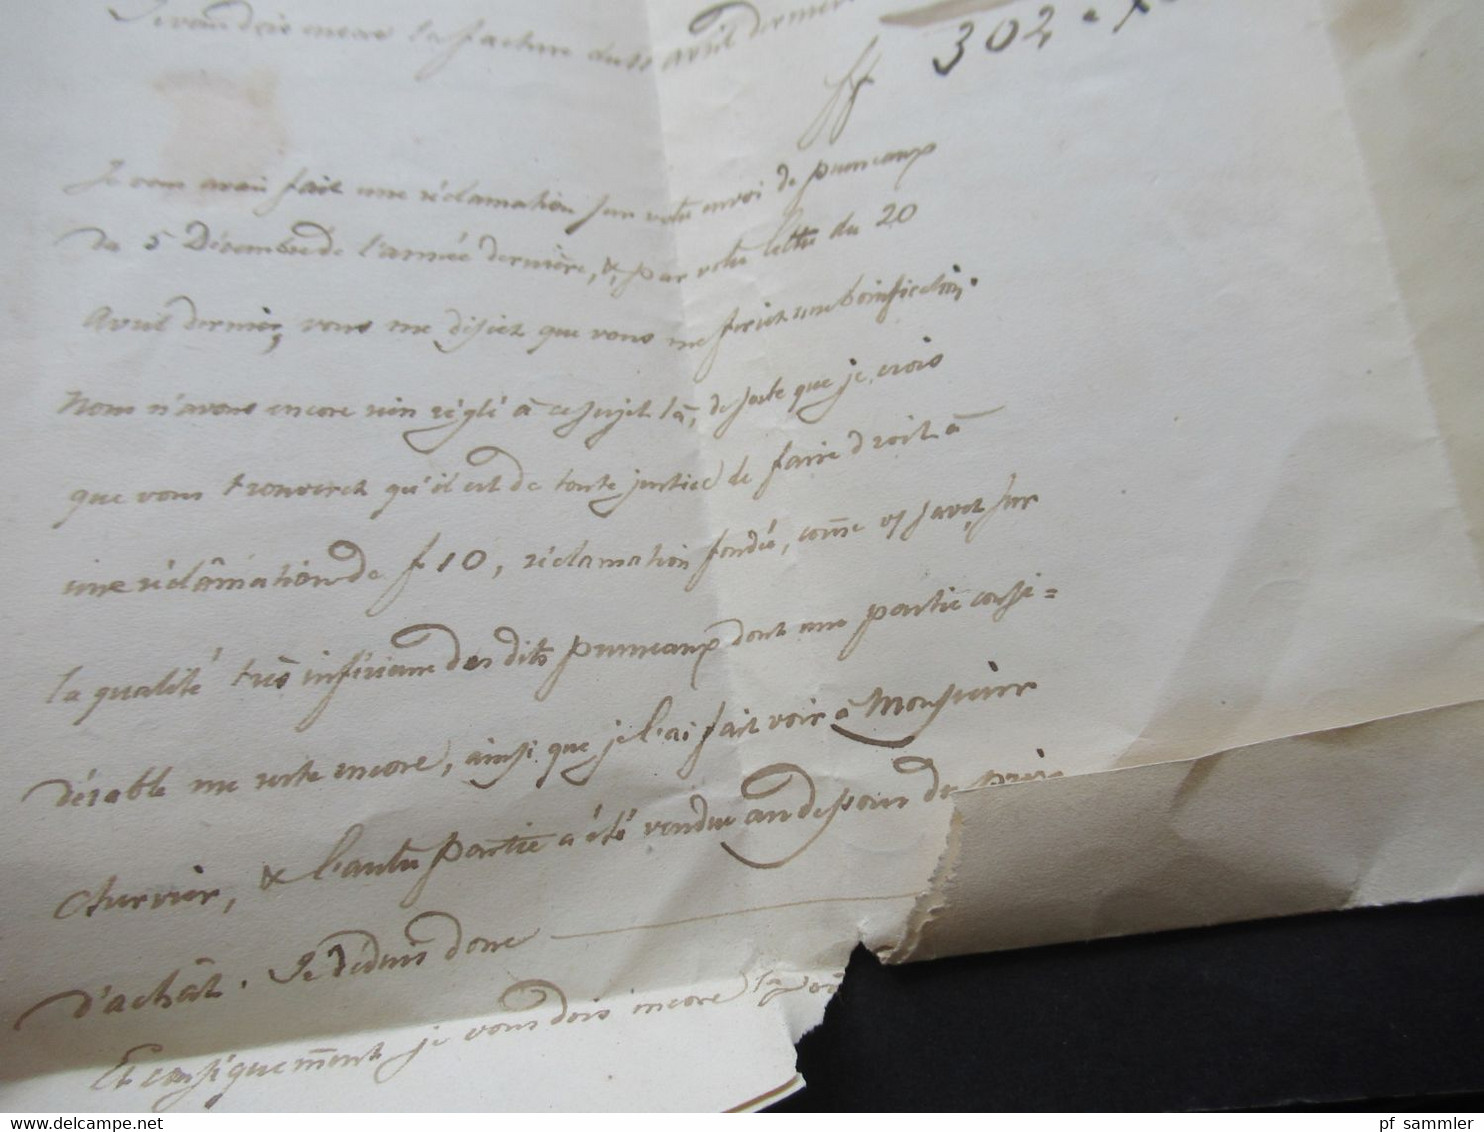 Je vous dois encore la facture du 18 avril dernier
ff 302 "
Je vous avais fait une réclamation sur votre envoi de pruneaux
du 5 Décembre de l'année dernière, & par votre lettre du 20
Avril dernier, vous me disiez que vous me feriez une bonification.
Nous n'avons encore rien réglé à ce sujet là, de sorte que je crois
que vous trouverez qu'il est de toute justice de faire droit à
une réclâmation de f 10, réclamation fondée, comme vs savez, sur
la qualité très inférieure des dits pruneaux dont une partie consi=
dérable me reste encore, ainsi que je l'ai fait voir à Monsieur
Churvier, & l'autre partie a été vendue au dessous du prix
d'achât. Je déduis donc
Et conséquemment je vous dois encore la
pf sammler